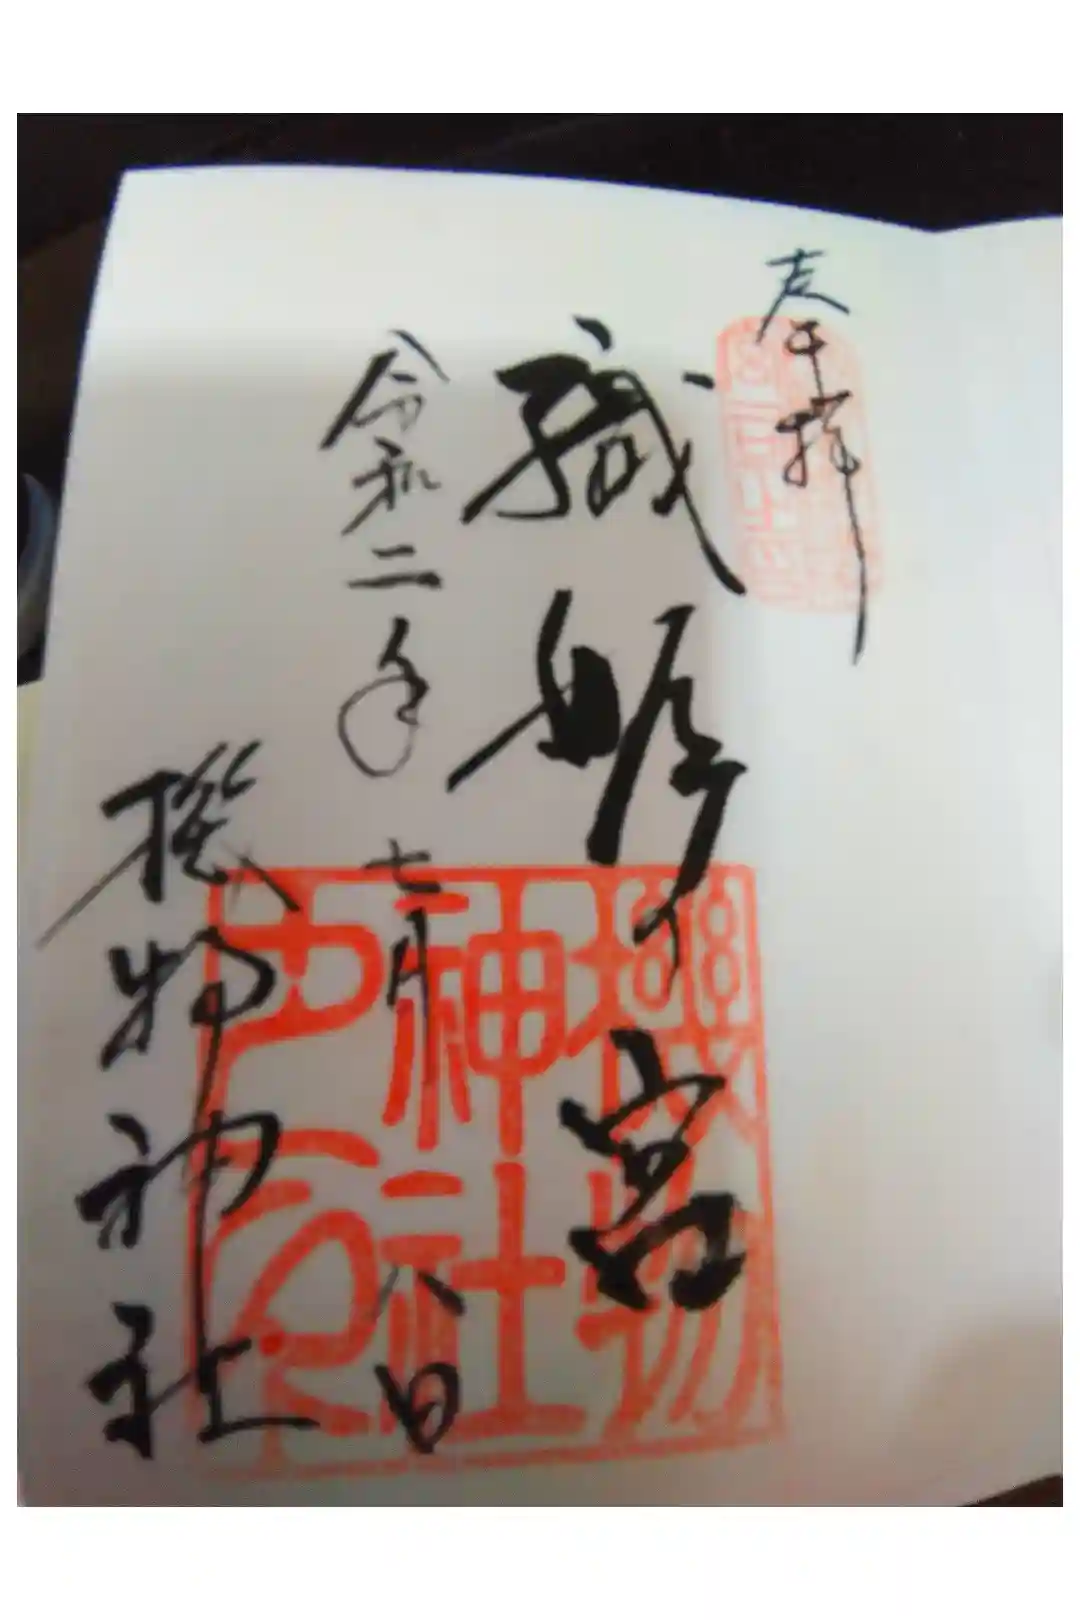 奉拝
織姫宮
令和二年七月八日
機物神社
機物
神社